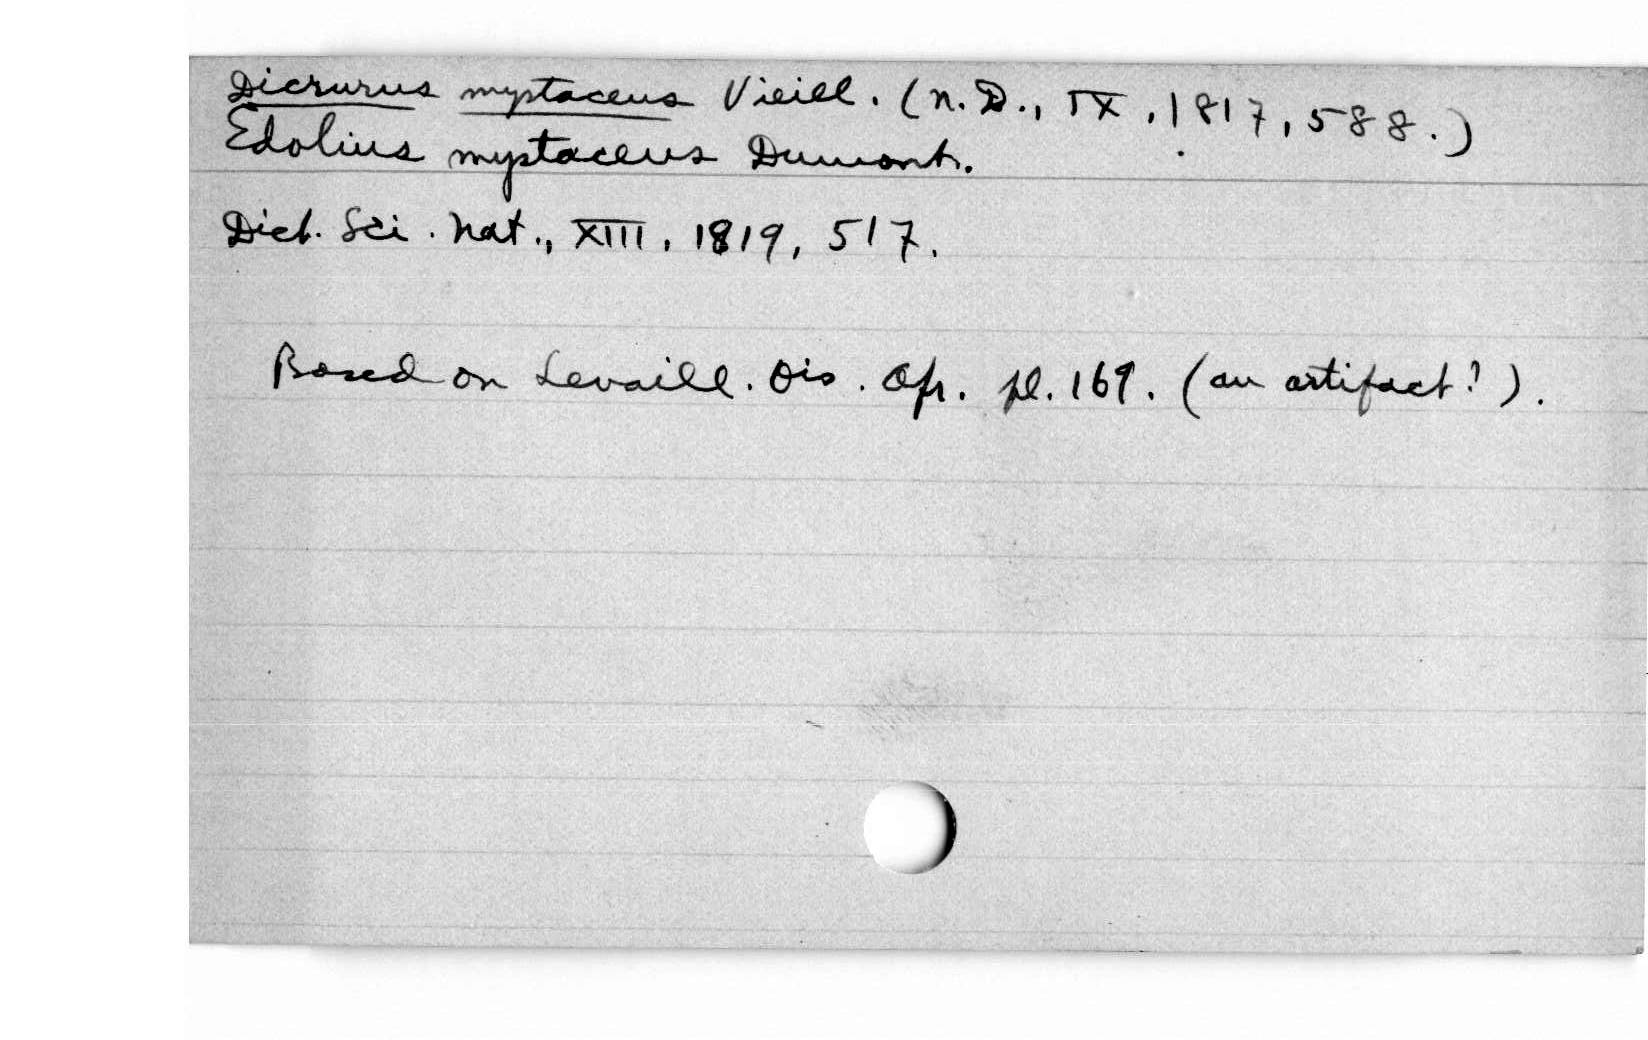 Dicrurus mystaceus Vieill. (N.D., IX, 1817, 588.)
Edolius mystaceus Dumont.
Dict. Sci. Nat., XIII, 1819, 517.
Based on Levaill. Ois. Afr. pl. 169. (an artifact?).